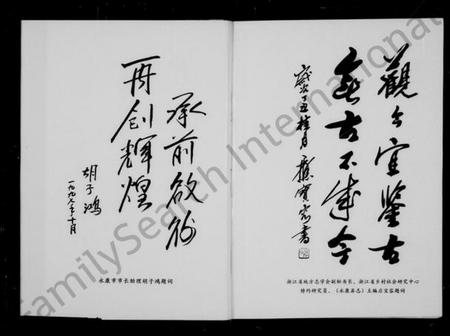 觀今宜鑒古
無古不成今
歲次丁丑桂月
書
浙江省地方志学会副秘书长、浙江省乡村社会研究中心
特约研究员、《永康县志》主编应宝容题词
承前啟後
再创輝煌
胡子鸿
一九九七年十月
永康市市长助理胡子鸿题词
FamilySearch International